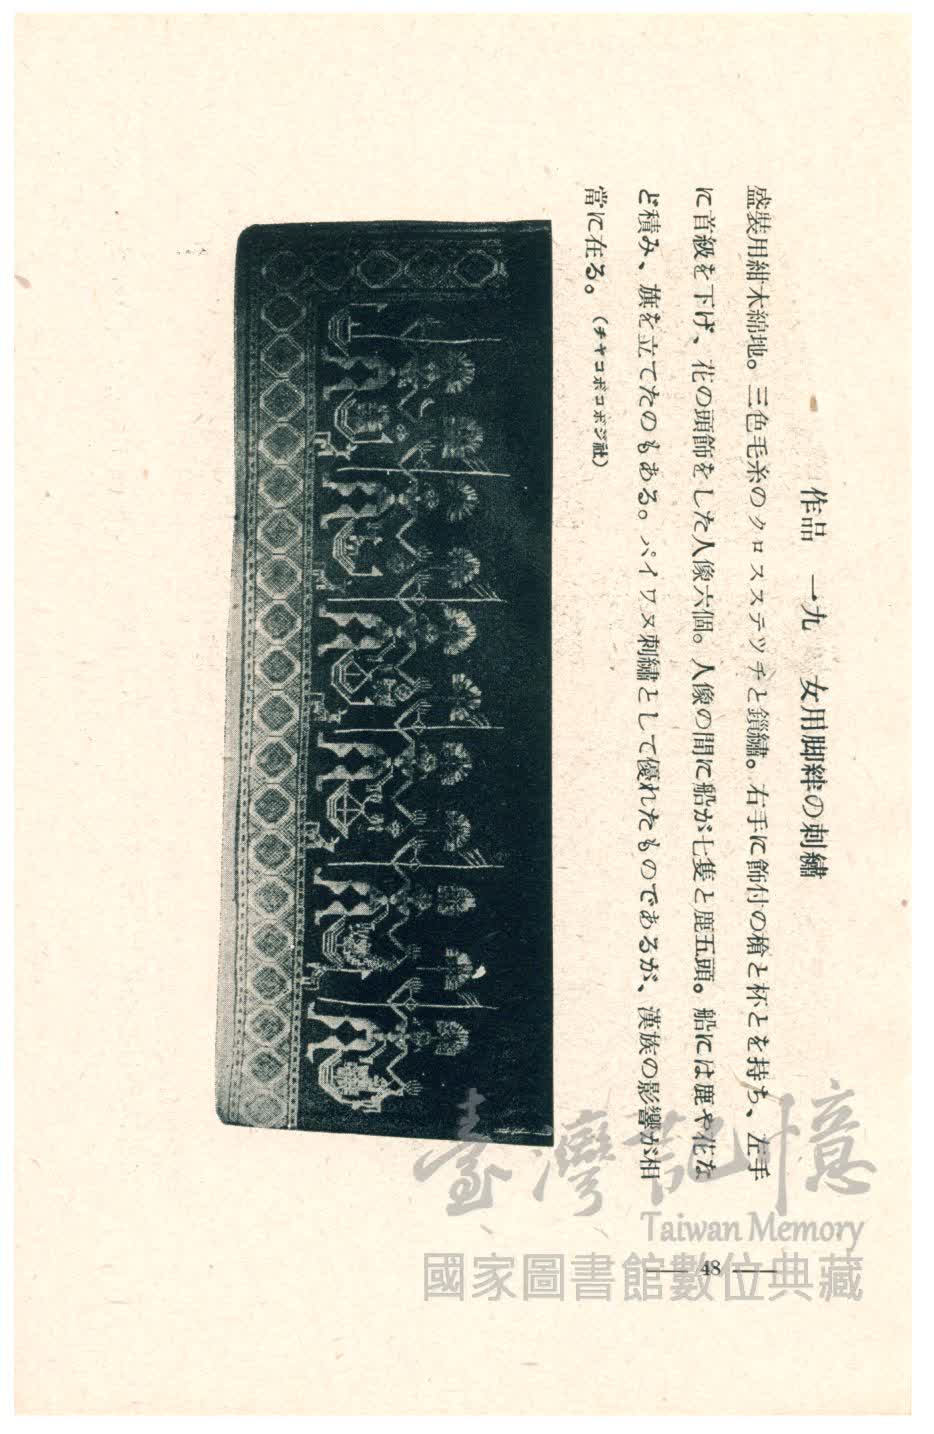 作品　一九　女用脚絆の刺繡
盛裝用紺木綿地。三色毛糸のクロスステッチと鎖繡。右手に飾付の槍と杯とを持ち、左手
に首級を下げ、花の頭飾をした人像六個。人像の間に船が七隻と鹿五頭。船には鹿や花な
ど積み、旗を立てたのもある。パイワヌ刺繡として優れたものであるが、漢族の影響が相
當に在る。（チヤコボコボジ社）
臺灣記憶
Taiwan Memory
國家圖書館數位典藏
— 48 —